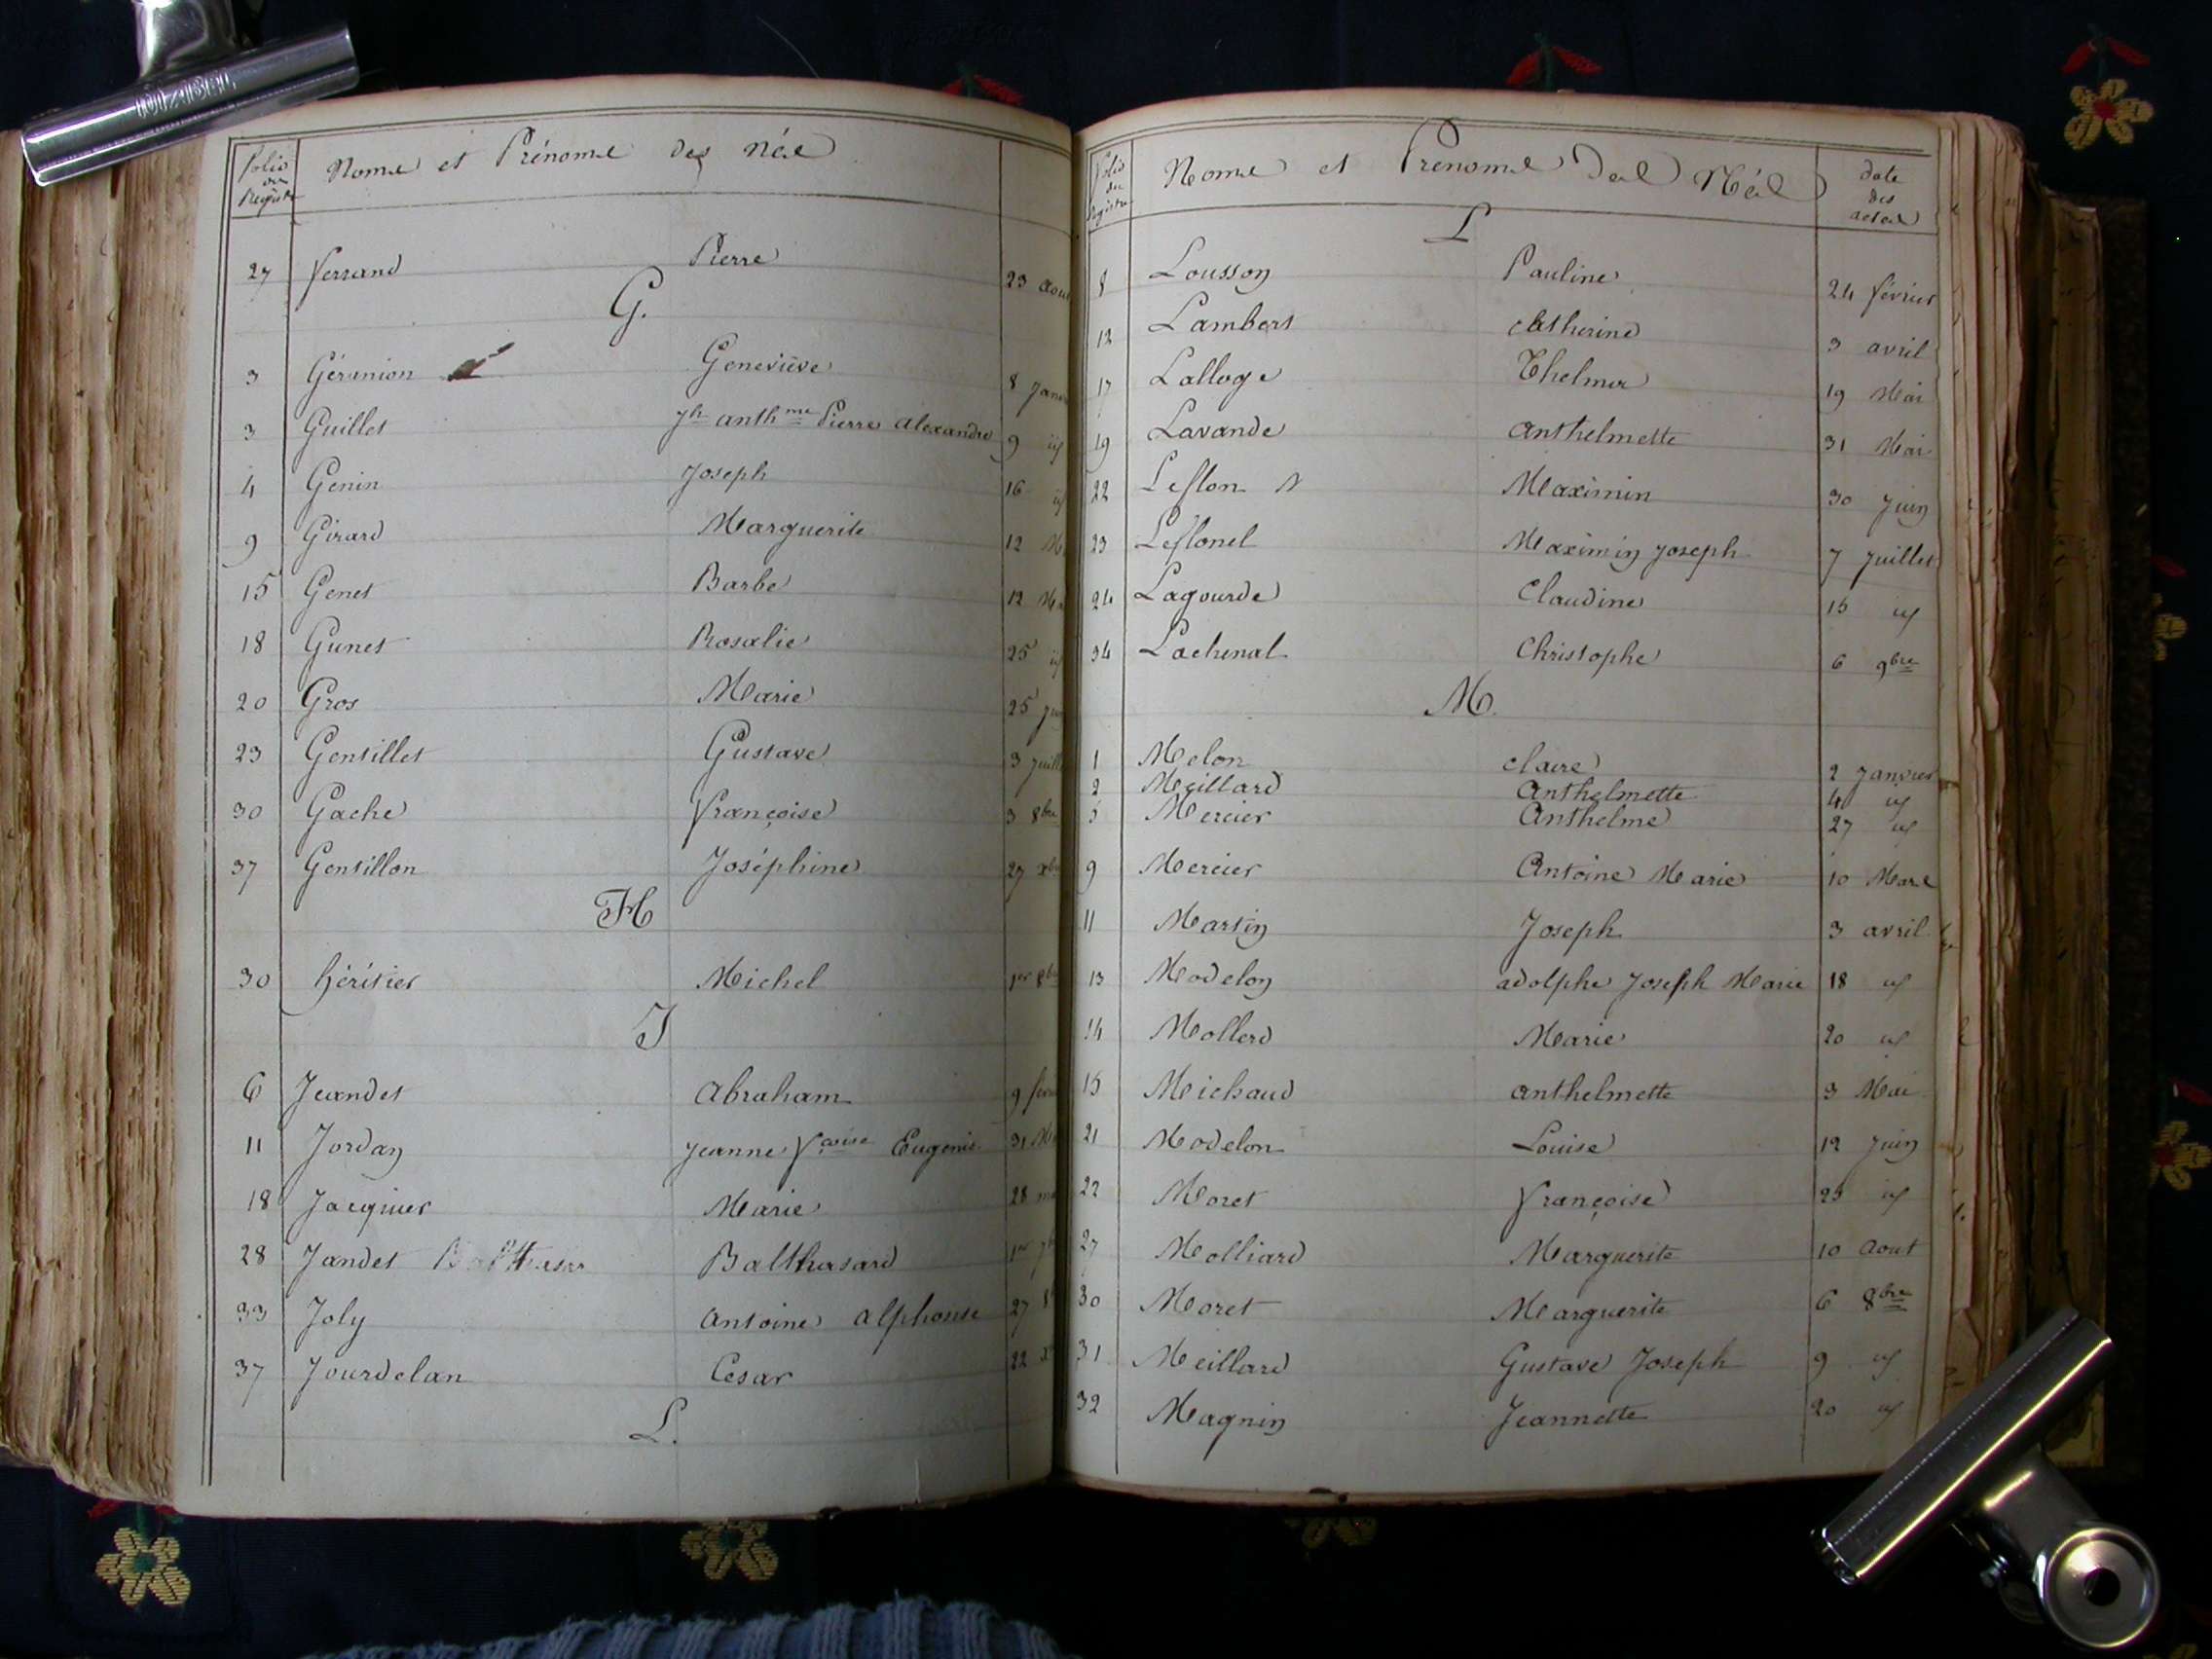 Folio du Registre Noms et Prénoms des Nés
27 Ferrand Pierre 23 Aout
G.
3 Géranion Geneviève 8 Janv
3 Guillet Jh anthme Pierre alexandre 9 id
4 Genin Joseph 16 id
9 Girard Marguerite 12 M
15 Genet Barbe 12 Ma
18 Gunet Rosalie 25 id
20 Gros Marie 25 jui
23 Gentillet Gustave 3 juill
30 Gache Françoise 3 8bre
37 Gentillon Joséphine 27 xbr
H
30 héritier Michel 1er 8b
J
6 Jeandet Abraham 9 fev
11 Jordan Jeanne Fçoise Eugénie 31 M
18 Jacquier Marie 28 ma
28 Jandet Balthasar Balthasard 1er 7b
33 Joly Antoine Alphonse 27 8
37 Jourdelan Cesar 22 x
L.
Folio du Registre Noms et Prenoms des Nés date des actes
L
8 Lousson Pauline 24 février
12 Lambert Catherine 3 avril
17 Lalloge Thelmer 19 Mai
19 Lavande anthelmette 31 Mai
22 Leflon Maximin 30 Juin
23 Leflonel Maximin Joseph 7 Juillet
24 Lagourde Claudine 15 id
34 Lachenal Christophe 6 9bre
M.
1 Melon Claire 2 Janvier
2 Meillard Anthelmette 4 id
5 Mercier Anthelme 27 id
9 Mercier Antoine Marie 10 Mars
11 Martin Joseph 3 avril
13 Modelon adolphe Joseph Marie 18 id
14 Mollerd Marie 20 id
15 Michaud anthelmette 3 Mai
21 Modelon Louise 12 Juin
22 Moret Françoise 25 id
27 Molliard Marguerite 10 Aout
30 Moret Marguerite 6 8bre
31 Meillard Gustave Joseph 9 id
32 Magnin Jeannette 20 id